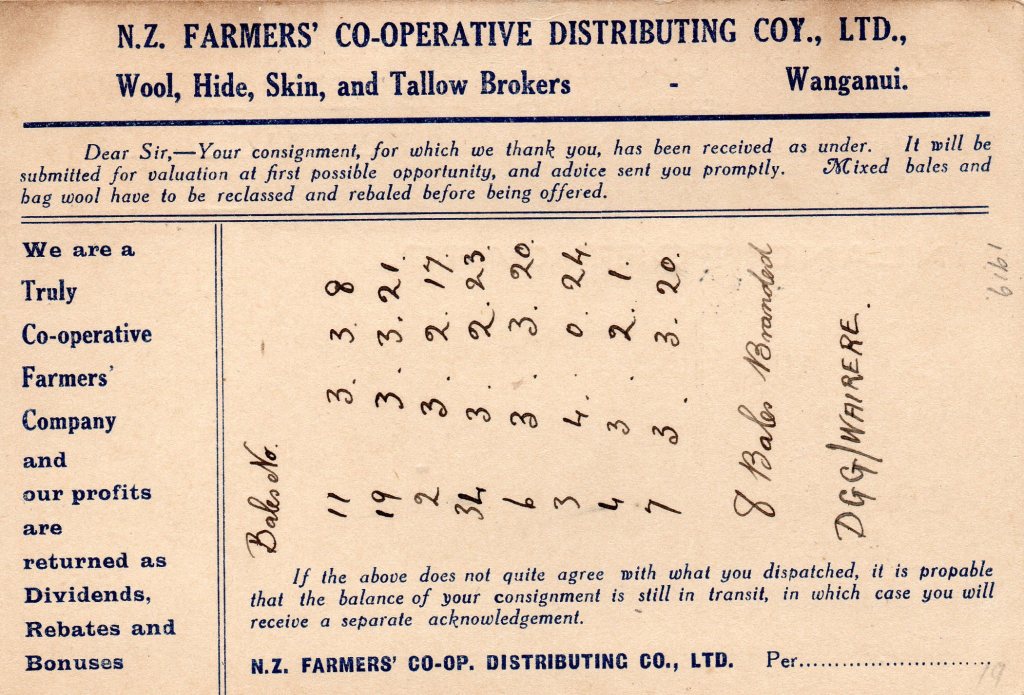 N.Z. FARMERS' CO-OPERATIVE DISTRIBUTING COY., LTD.,
Wool, Hide, Skin, and Tallow Brokers - Wanganui.
Dear Sir,—Your consignment, for which we thank you, has been received as under. It will be
submitted for valuation at first possible opportunity, and advice sent you promptly. Mixed bales and
bag wool have to be reclassed and rebaled before being offered.
We are a
Truly
Co-operative
Farmers'
Company
and
our profits
are
returned as
Dividends,
Rebates and
Bonuses
Bales No.
11 3. 3. 8
19 3. 3. 21.
2 3. 2. 17.
34 3. 2. 23.
6 3. 3. 20.
3 4. 0. 24.
4 3. 2. 1.
7 3. 3. 20.
8 Bales Branded
DGG/WAIRERE.
1919
If the above does not quite agree with what you dispatched, it is propable
that the balance of your consignment is still in transit, in which case you will
receive a separate acknowledgement.
N.Z. FARMERS' CO-OP. DISTRIBUTING CO., LTD. Per..............................
19